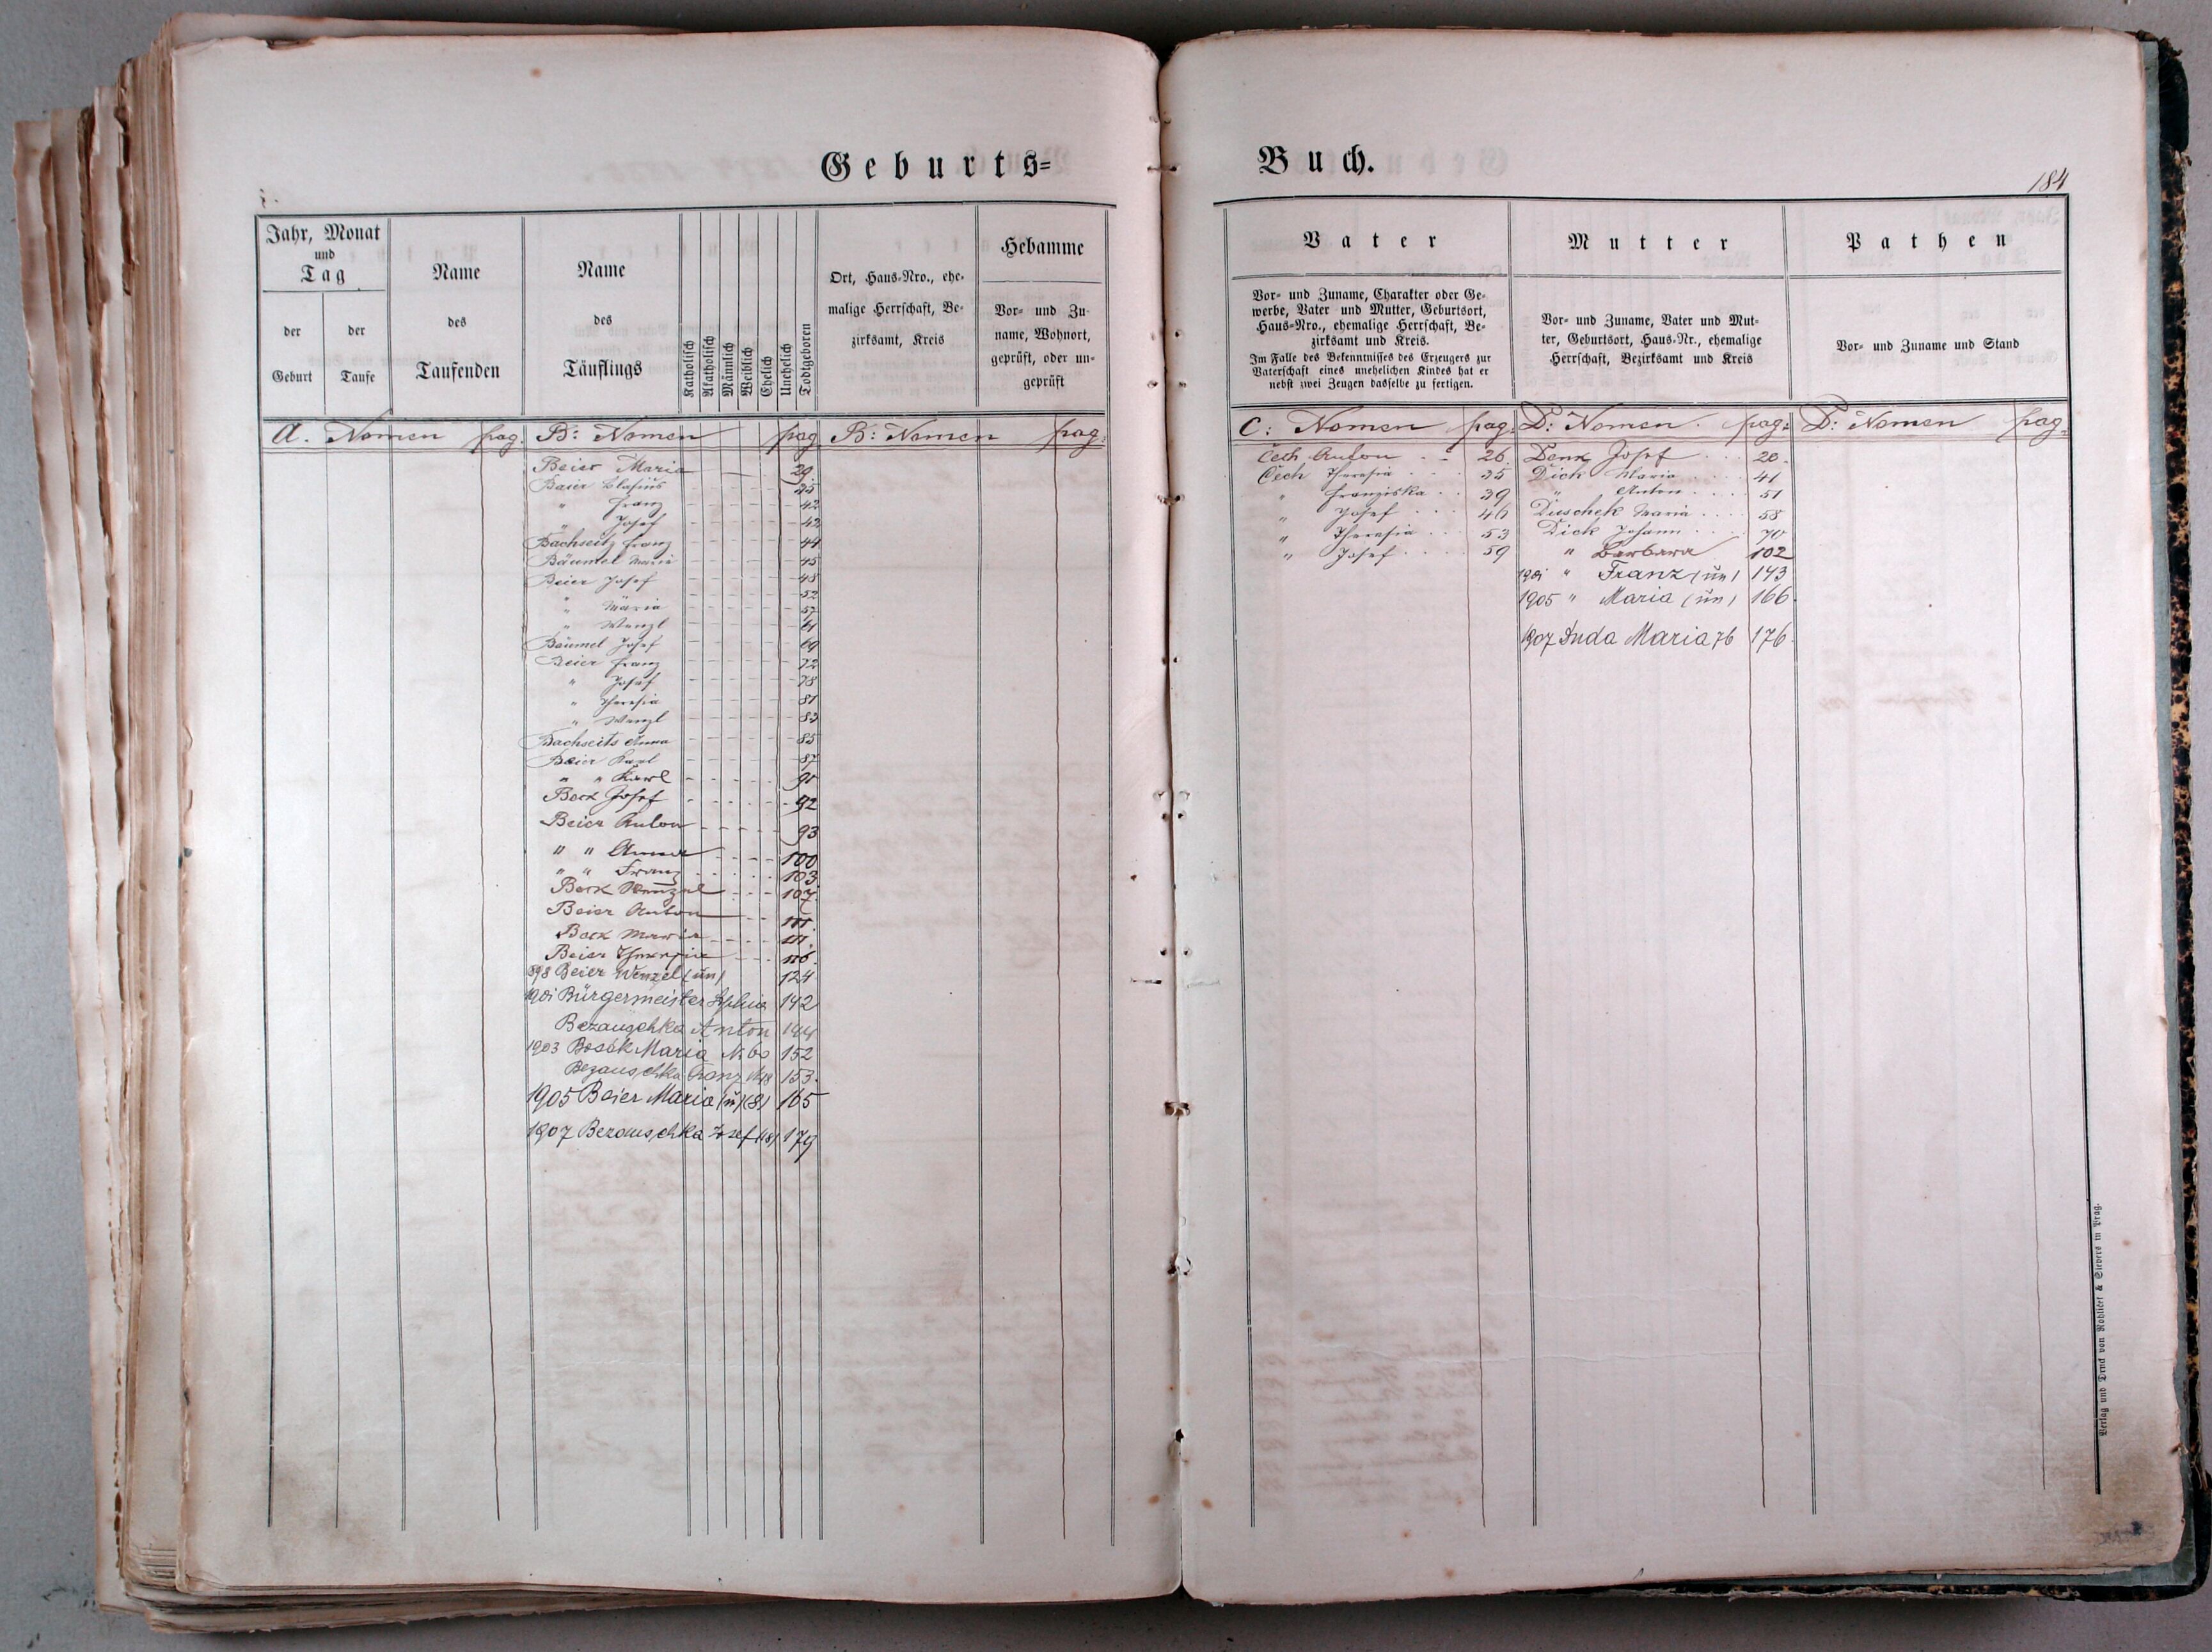 Geburts=
Jahr, Monat
und
Tag
der
Geburt
der
Taufe
Name
des
Taufenden
Name
des
Täuflings
Katholisch
Akatholisch
Männlich
Weiblich
Ehelich
Unehelich
Todtgeboren
Ort, Haus-Nro., ehe-
malige Herrschaft, Be-
zirksamt, Kreis
Hebamme
Vor- und Zu-
name, Wohnort,
geprüft, oder un-
geprüft
A. Nomen pag. B: Nomen pag B: Nomen pag:
Beier Maria 29
Baier Blasius 35
" Franz 42
" Josef 42
Bachseitz Franz 44
Bäumel Maria 45
Beier Josef 48
52
" Maria 57
" Wenzl 61
Bäumel Josef 69
Beier Franz 72
" Josef 78
" Theresia 81
" Wenzl 83
Bachseits Anna 85
Beier Karl 87
" " Karl 90
Bock Josef 92
Beier Anton 93
" " Anna 100
" " Franz 103
Bock Wenzel 107
Beier Anton
Bock Maria 111.
Beier Theresia 116.
898 Beier Wenzel (un) 124
1901 Bürgermeister 142
Bezauschka Anton 144
1903 Bosák Maria N. 60 152
Bezauschka Franz 153.
1905 Beier Maria (un) (8) 165
1907 Bezauschka Josef (18) 179
Buch.
184
Vater
Vor- und Zuname, Charakter oder Ge-
werbe, Vater und Mutter, Geburtsort,
Haus-Nro., ehemalige Herrschaft, Be-
zirksamt und Kreis.
Im Falle des Bekenntnisses des Erzeugers zur
Vaterschaft eines unehelichen Kindes hat er
nebst zwei Zeugen dasselbe zu fertigen.
Mutter
Vor- und Zuname, Vater und Mut-
ter, Geburtsort, Haus-Nr., ehemalige
Herrschaft, Bezirksamt und Kreis
Pathen
Vor- und Zuname und Stand
C: Nomen pag: D: Nomen pag: D: Nomen pag:
Čech Anton 26
Čech Theresia 35
" Franziska 39
" Josef 46
" Theresia 53
" Josef 59
Denk Josef 20.
Dick Maria 41
" Anton 51
Duschek Maria 58
Dick Johann 70
" Barbara 102
1901 " Franz (un) 143
1905 " Maria (un) 166.
1907 Duda Maria 76 176.
Verlag und Druck von Rohliček & Sievers in Prag.